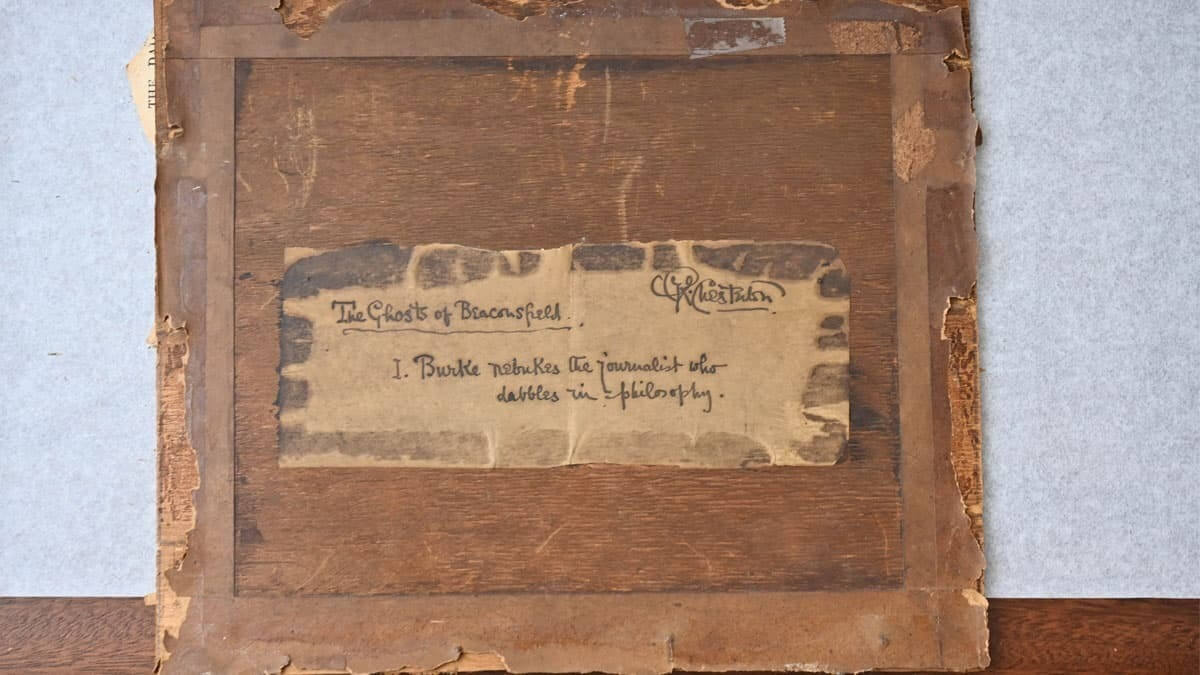 THE DA
GKChesterton
The Ghosts of Beaconsfield.
I. Burke rebukes the journalist who
dabbles in philosophy.